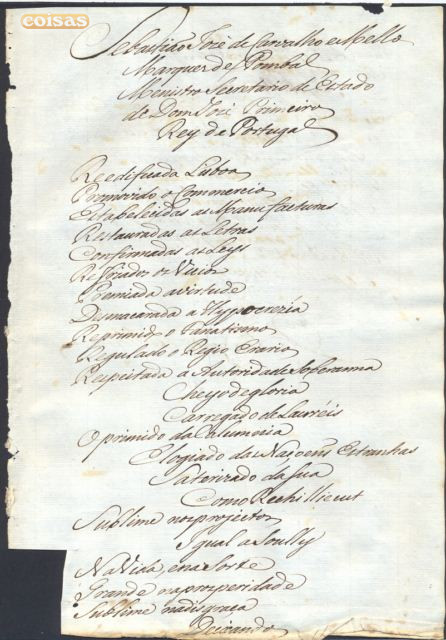 coisas
Sebastião José de Carvalho e Mello
Marquez de Pombal
Menistro Secretario de Estado
de Dom José Primeiro
Rey de Portugal
Reedificada Lisboa
Promovido o Commercio
Estabelecidas as Manufacturas
Restauradas as Letras
Confirmadas as Leys
os Vicios
Premiada a virtude
Desmacarada a Hyppocrezia
Reprimido o Fanatismo
Regulado o Regio Erario
Respeitada a Autoridade Soberanna
Cheyo de gloria
Carregado de Lauréis
Oprimido da Calumnia
Elogiado das Nasoens Estranhas
da sua
Como Rechillieut
Sublime nos projectos
Igual a Soully
Na Vida e na Sorte
Grande na prosperidade
Sublime na disgraça
Deixando